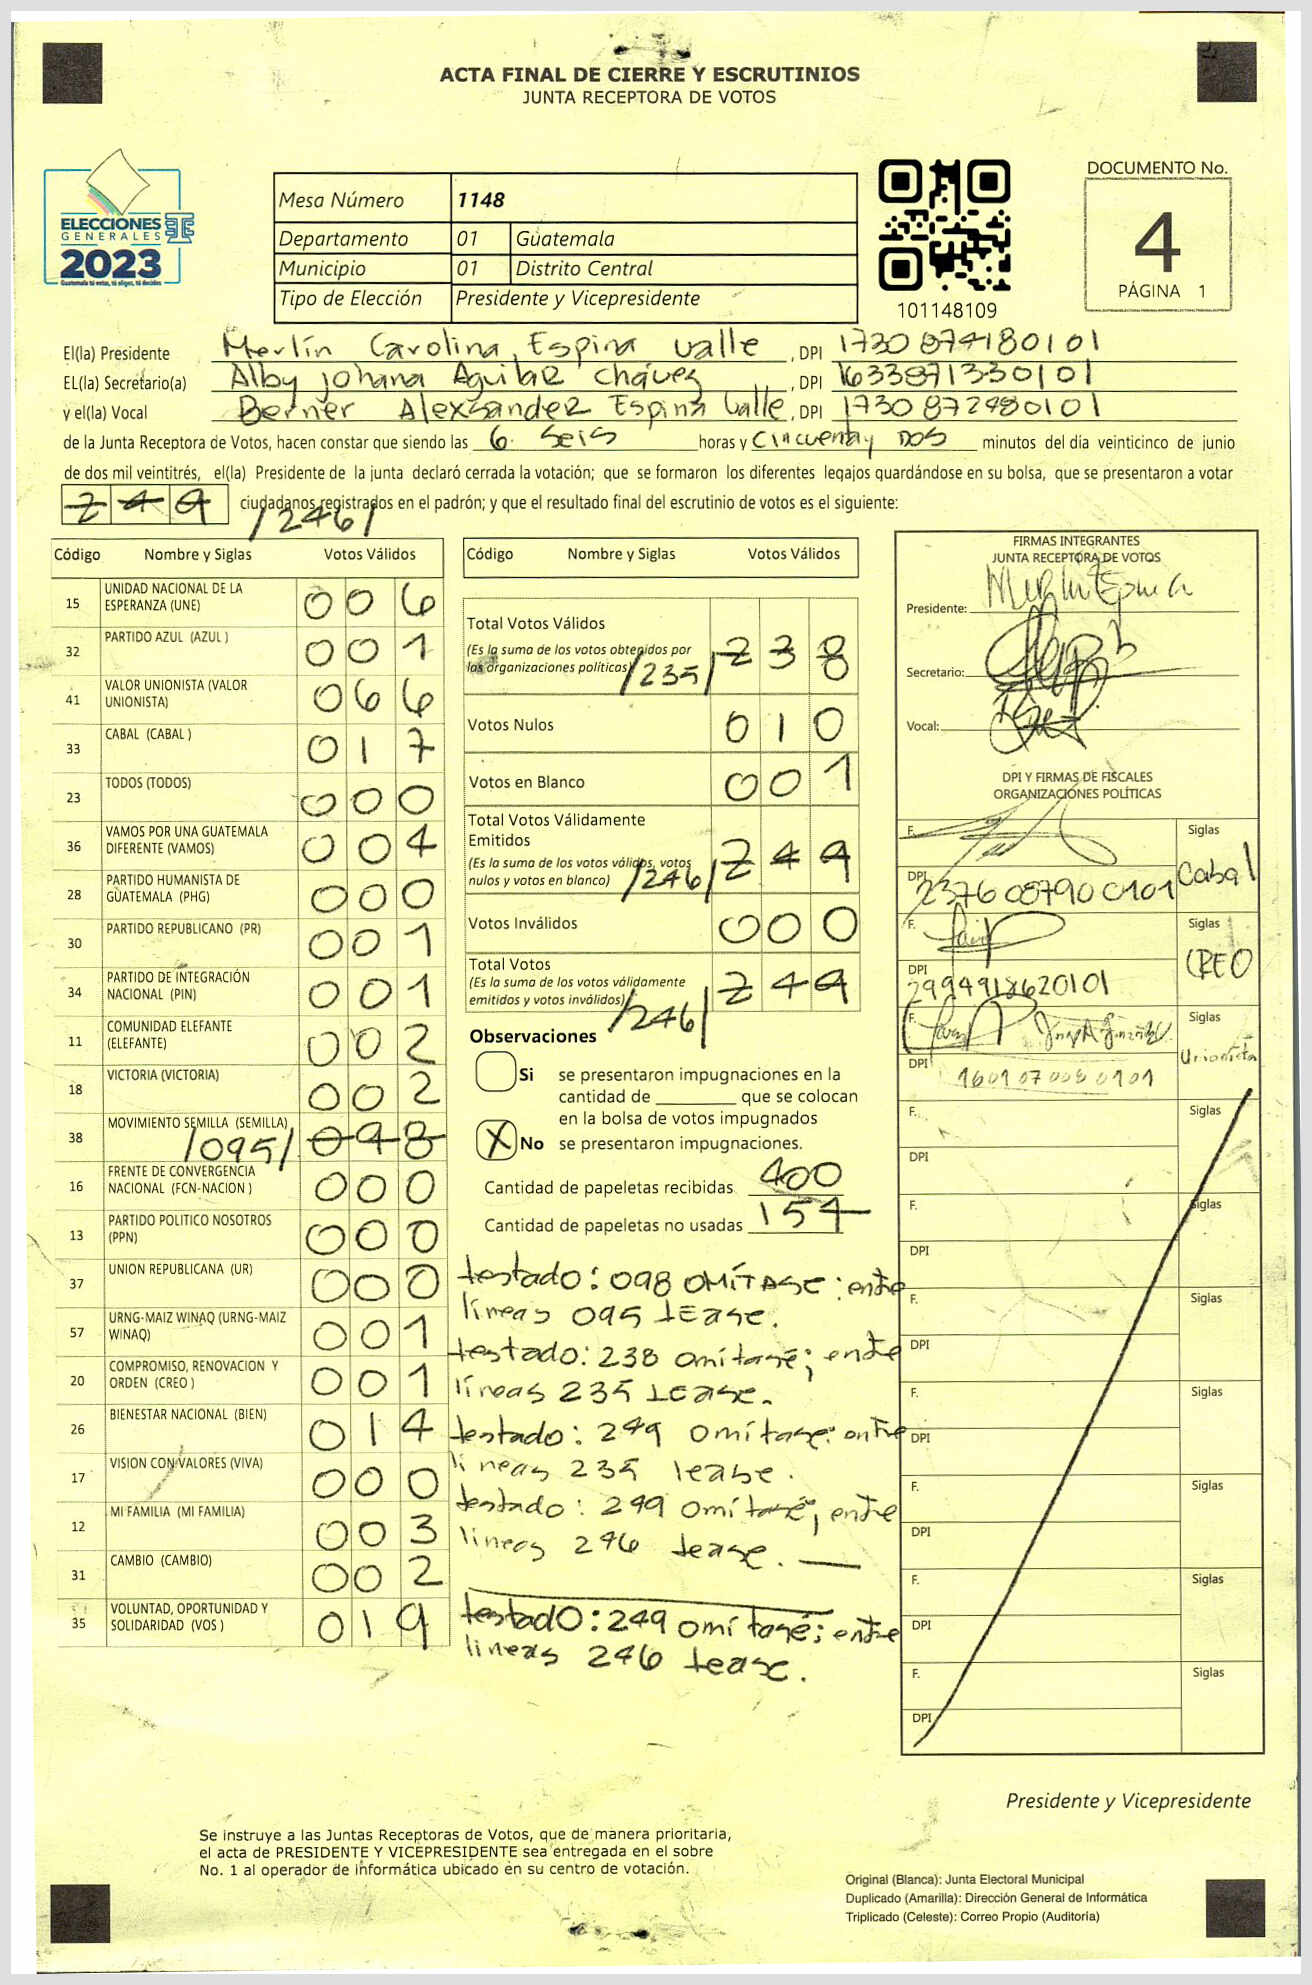 ACTA FINAL DE CIERRE Y ESCRUTINIOS
JUNTA RECEPTORA DE VOTOS
ELECCIONES
GENERALES
2023
Guatemala tú votas, tú eliges, tú decides
Mesa Número 1148
Departamento 01 Guatemala
Municipio 01 Distrito Central
Tipo de Elección Presidente y Vicepresidente
101148109
DOCUMENTO No.
4
PÁGINA 1
El(la) Presidente Merlín Carolina Espina Valle, DPI 1730874180101
EL(la) Secretario(a) Alby Johana Aguilar Chávez, DPI 1633871330101
y el(la) Vocal Berner Alexsander Espina Valle, DPI 1730872480101
de la Junta Receptora de Votos, hacen constar que siendo las 6 Seis horas y Cincuenta y Dos minutos del día veinticinco de junio
de dos mil veintitrés, el(la) Presidente de la junta declaró cerrada la votación; que se formaron los diferentes legajos quardándose en su bolsa, que se presentaron a votar
249 ciudadanos registrados en el padrón; y que el resultado final del escrutinio de votos es el siguiente:
/246/
Código Nombre y Siglas Votos Válidos
15 UNIDAD NACIONAL DE LA ESPERANZA (UNE) 006
32 PARTIDO AZUL (AZUL ) 001
41 VALOR UNIONISTA (VALOR UNIONISTA) 066
33 CABAL (CABAL ) 017
23 TODOS (TODOS) 000
36 VAMOS POR UNA GUATEMALA DIFERENTE (VAMOS) 004
28 PARTIDO HUMANISTA DE GUATEMALA (PHG) 000
30 PARTIDO REPUBLICANO (PR) 001
34 PARTIDO DE INTEGRACIÓN NACIONAL (PIN) 001
11 COMUNIDAD ELEFANTE (ELEFANTE) 002
18 VICTORIA (VICTORIA) 002
38 MOVIMIENTO SEMILLA (SEMILLA) /095/ 098
16 FRENTE DE CONVERGENCIA NACIONAL (FCN-NACION ) 000
13 PARTIDO POLITICO NOSOTROS (PPN) 000
37 UNION REPUBLICANA (UR) 000
57 URNG-MAIZ WINAQ (URNG-MAIZ WINAQ) 001
20 COMPROMISO, RENOVACION Y ORDEN (CREO ) 001
26 BIENESTAR NACIONAL (BIEN) 014
17 VISION CON VALORES (VIVA) 000
12 MI FAMILIA (MI FAMILIA) 003
31 CAMBIO (CAMBIO) 002
35 VOLUNTAD, OPORTUNIDAD Y SOLIDARIDAD (VOS ) 019
Código Nombre y Siglas Votos Válidos
Total Votos Válidos
(Es la suma de los votos obtenidos por
las organizaciones políticas) /235/ 238
Votos Nulos 010
Votos en Blanco 001
Total Votos Válidamente
Emitidos
(Es la suma de los votos válidos, votos
nulos y votos en blanco) /246/ 249
Votos Inválidos 000
Total Votos
(Es la suma de los votos válidamente
emitidos y votos inválidos) /246/ 249
Observaciones
Si se presentaron impugnaciones en la
cantidad de ________ que se colocan
en la bolsa de votos impugnados
X No se presentaron impugnaciones.
Cantidad de papeletas recibidas 400
Cantidad de papeletas no usadas 154
testado: 098 OMÍTASE: entre
líneas 095 LEASE.
testado: 238 omítasé; entre
líneas 235 LEASE.
testado: 249 omítase: entre
líneas 235 lease.
testado: 249 omítasé; entre
líneas 246 Lease.
testado: 249 omítasé; entre
líneas 246 Lease.
FIRMAS INTEGRANTES
JUNTA RECEPTORA DE VOTOS
Presidente:
Secretario:
Vocal:
DPI Y FIRMAS DE FISCALES
ORGANIZACIONES POLÍTICAS
F. Siglas
DPI 2376087900101 Cabal
F. Siglas
DPI 2994918620101 CREO
F. Siglas
DPI 1601070080101 Unionista
F. Siglas
DPI
F. Siglas
DPI
F. Siglas
DPI
F. Siglas
DPI
F. Siglas
DPI
F. Siglas
DPI
F. Siglas
DPI
Presidente y Vicepresidente
Se instruye a las Juntas Receptoras de Votos, que de manera prioritaria,
el acta de PRESIDENTE Y VICEPRESIDENTE sea entregada en el sobre
No. 1 al operador de informática ubicado en su centro de votación.
Original (Blanca): Junta Electoral Municipal
Duplicado (Amarilla): Dirección General de Informática
Triplicado (Celeste): Correo Propio (Auditoría)